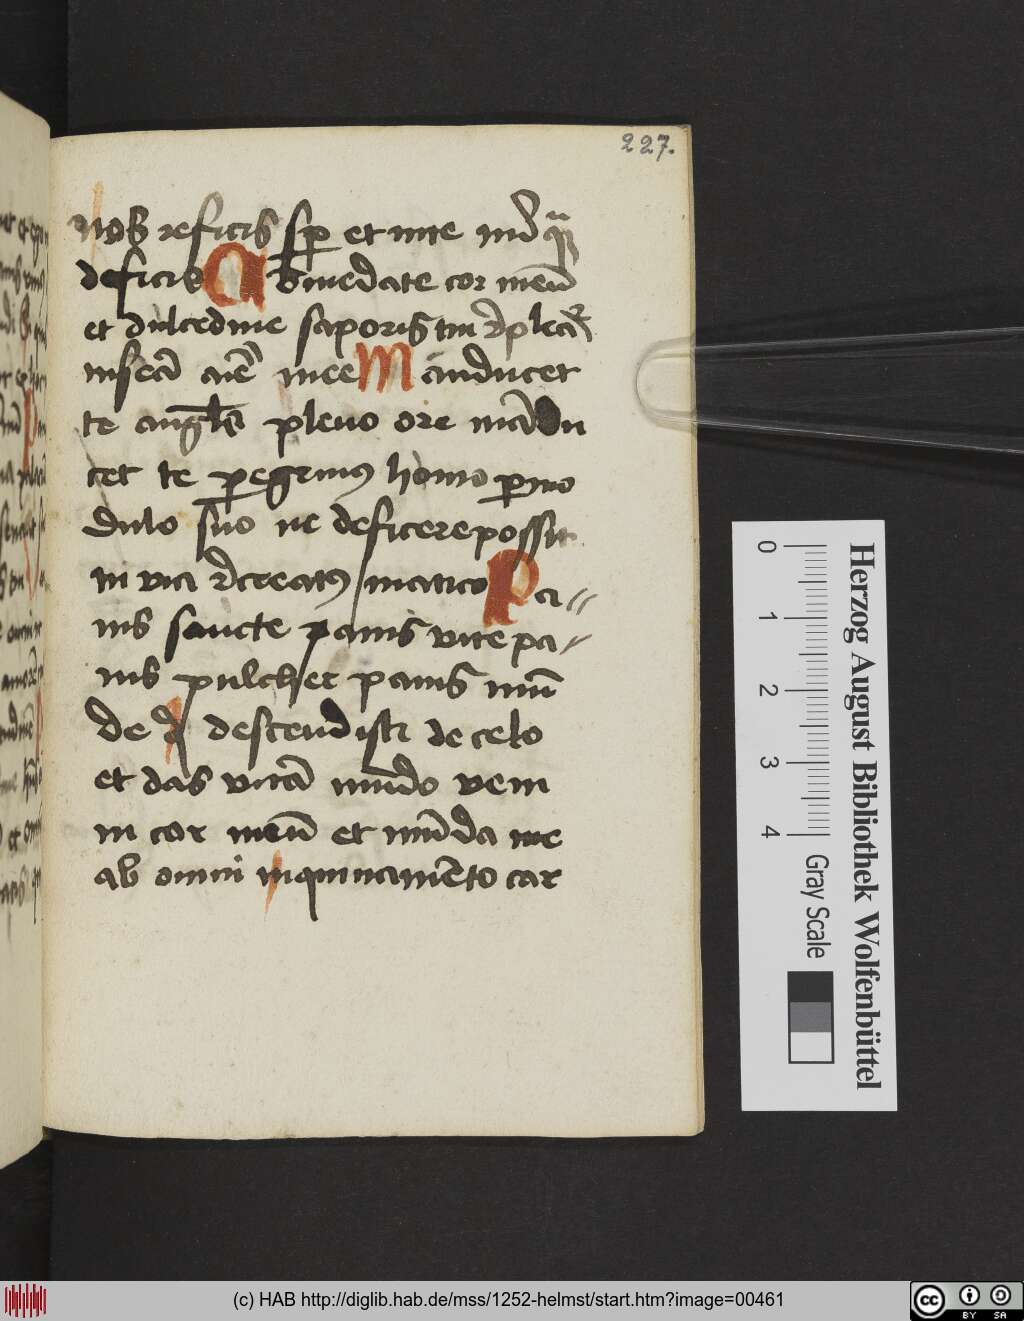 227.
nos reficis sp et in te nū̃ qͣ
deficis Ab te me date cor meū
et dulcedine saporis tui r̃pleaͣ
viscera aīe mee Manducet
te angl̃s pleno ore mãdu
cet te peregrinꝯ homo p mo
dulo suo ne deficere possit
in via r̃creatꝯ viatico Pa
nis sancte panis vite pa
nis pulcher panis mū
de q̃ descendisti de celo
et das vitã mũdo veni
in cor meū et mũda me
ab omni inquinamẽto car
Herzog August Bibliothek Wolfenbüttel
0 1 2 3 4 Gray Scale
(c) HAB http://diglib.hab.de/mss/1252-helmst/start.htm?image=00461
cc BY SA